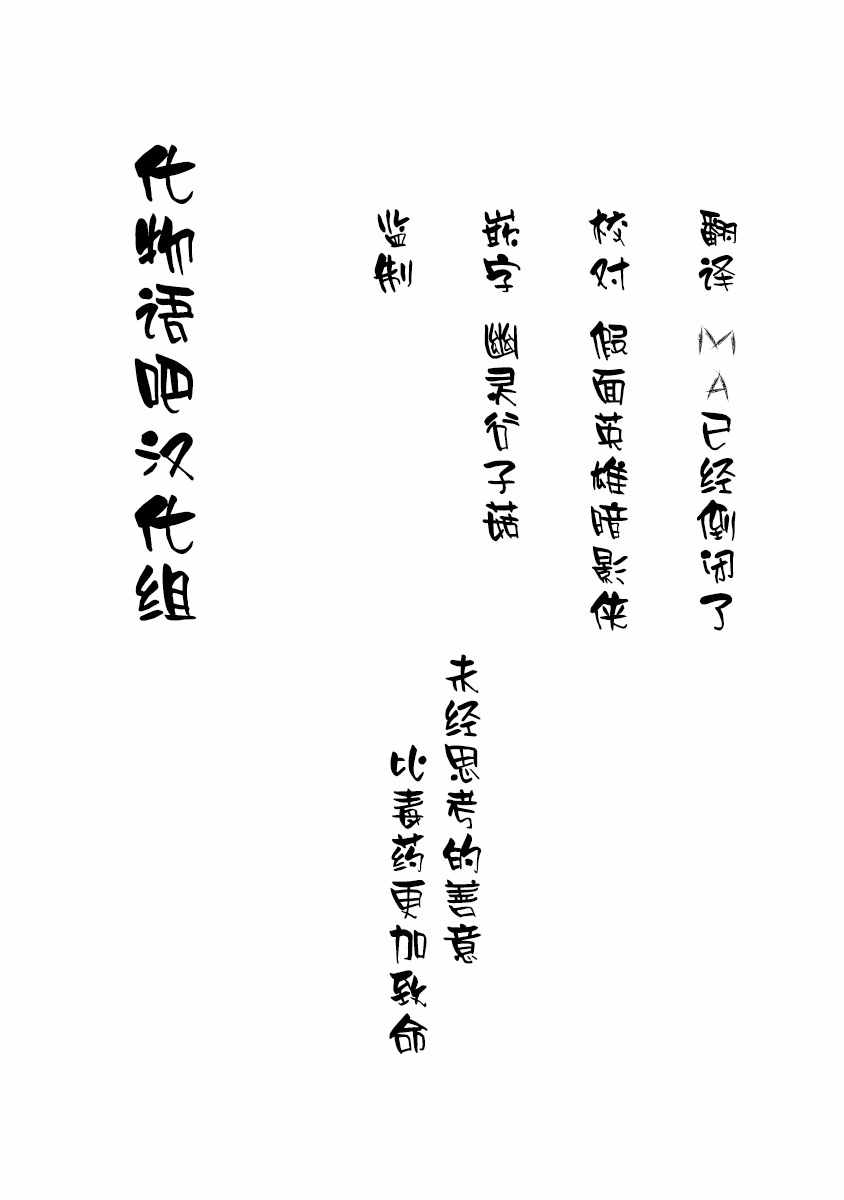 翻译 MA已经倒闭了
校对 假面英雄暗影侠
嵌字 幽灵谷子菇
监制
未经思考的善意
比毒药更加致命
化物语吧汉化组